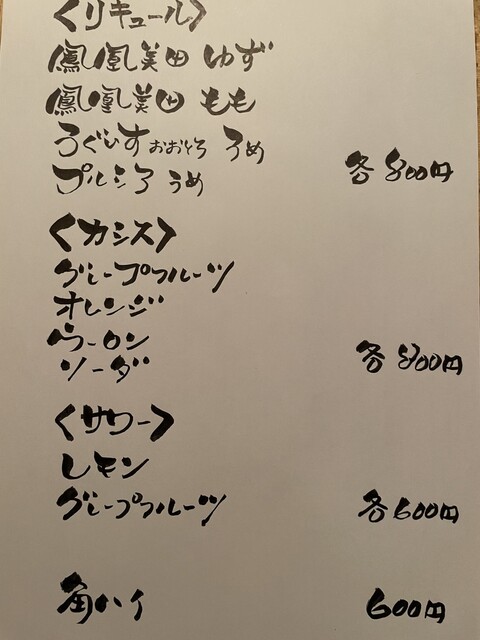 〈リキュール〉
鳳凰美田 ゆず
鳳凰美田 もも
うぐいすおおとろ うめ
プルシア うめ 各800円
〈カシス〉
グレープフルーツ
オレンジ
ウーロン
ソーダ 各800円
〈サワー〉
レモン
グレープフルーツ 各600円
角ハイ 600円